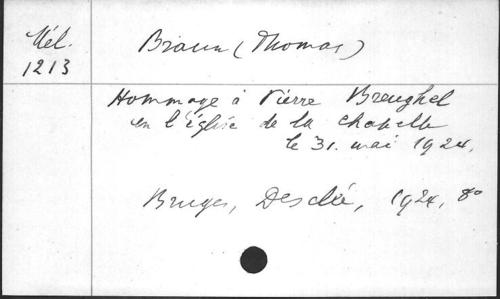 Mél.
1213
Braun (Thomas)
Hommage à Pierre Breughel
en l'église de la chapelle
le 31. mai 1924.
Bruges, Desclée, 1924, 8°